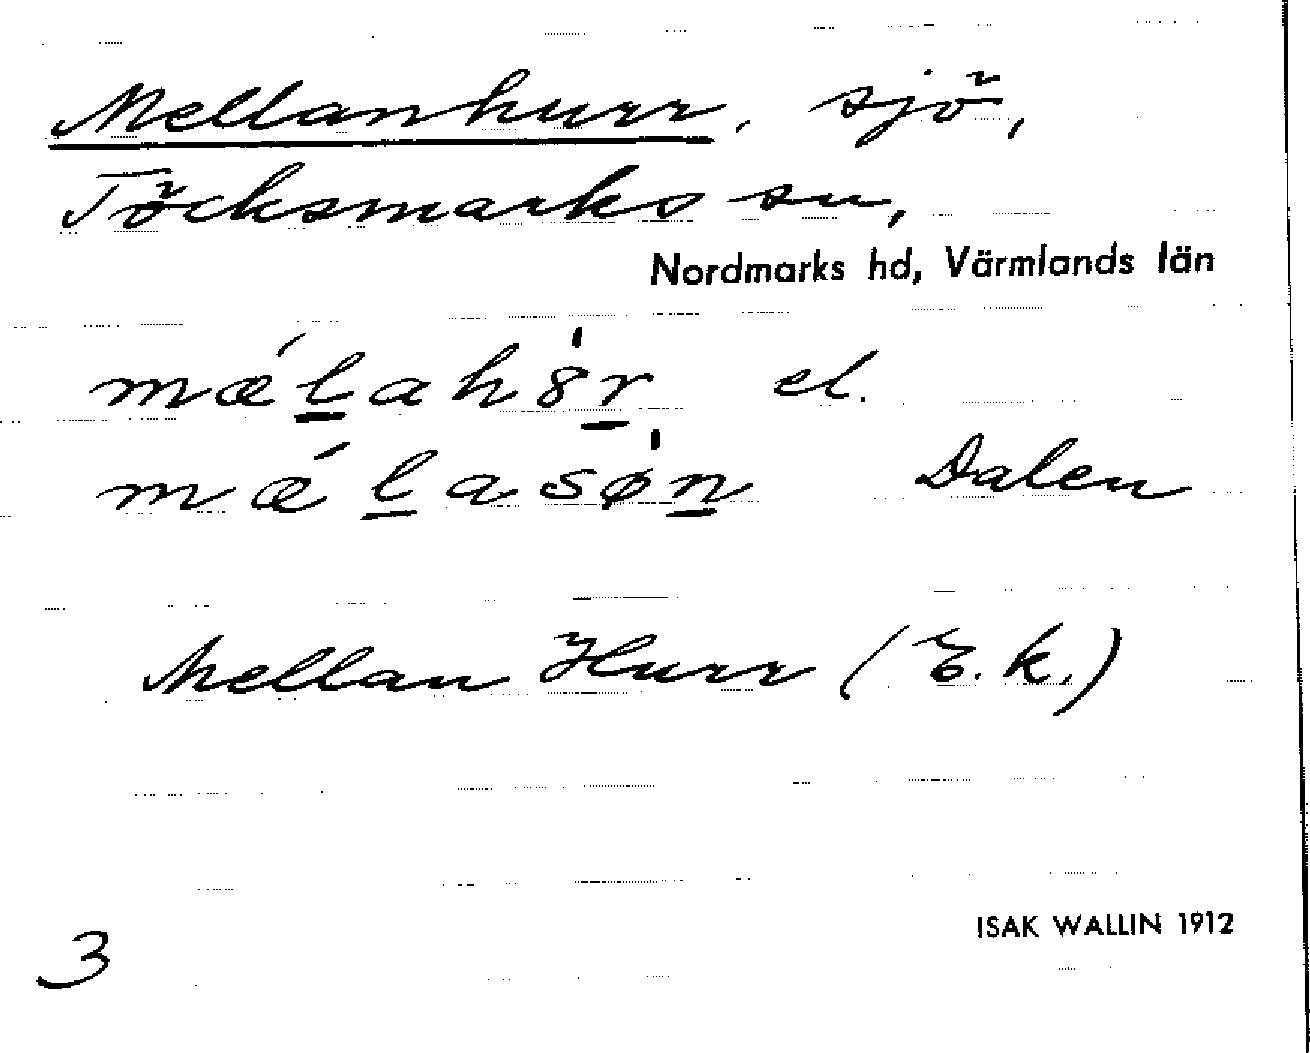 Mellanhurr, sjö,
Töcksmarks sn,
Nordmarks hd, Värmlands län
mǽl̲ahȣ̍r̲ el.
mǽl̲asø̍n̲ Dalen
Mellan Hurr (E.k.)
ISAK WALLIN 1912
3